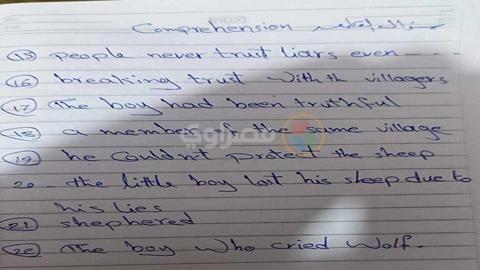 Comprehension
(15) people never trust liars even - - - -
(16) breaking trust with th villagers
(17) The boy had been truthful
(18) a member of the same village
(19) he couldn't protect the sheep
20 - the little boy lost his sheep due to
his lies
(21) shephered
(22) The boy who cried wolf.
مصراوي